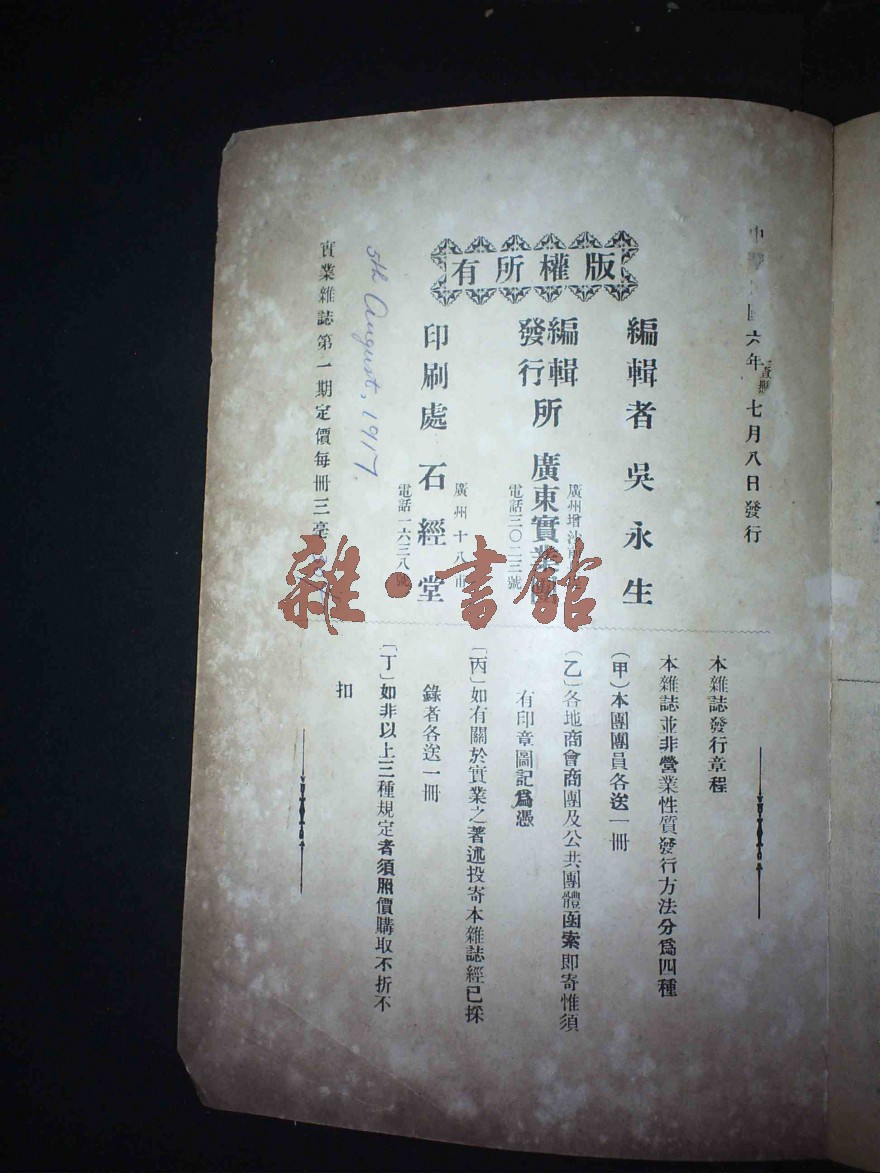 中 國六年 七月八日發行
版權所有
編輯者 吳永生
編輯發行所 廣東實業團
廣州增沙
電話三〇二三號
印刷處 石經堂
廣州十八甫
電話一六三八號
5th August, 1917.
實業雜誌第一期定價每冊三毫
雜·書館
本雜誌發行章程
本雜誌並非營業性質發行方法分爲四種
(甲)本團團員各送一冊
(乙)各地商會商團及公共團體函索即寄惟須
有印章圖記爲憑
(丙)如有關於實業之著述投寄本雜誌經已採
錄者各送一冊
(丁)如非以上三種規定者須照價購取不折不
扣